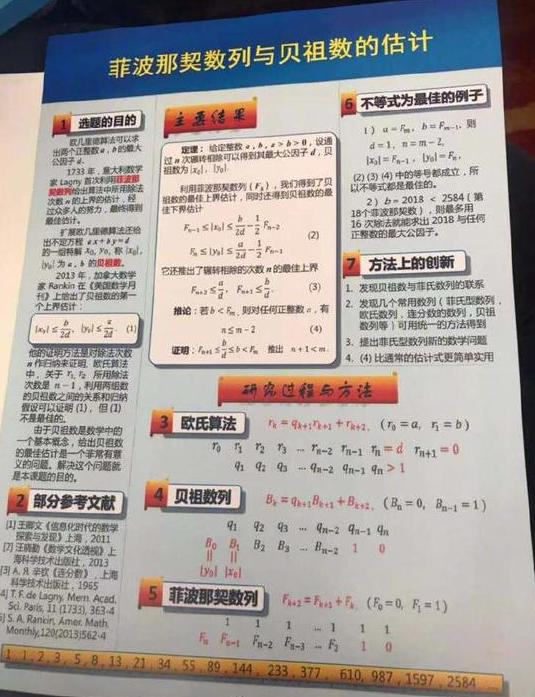 菲波那契数列与贝祖数的估计
1 选题的目的
欧几里德算法可以求
出两个正整数 a , b 的最大
公因子 d.
1733 年，意大利数学
家 Lagny 首次利用菲波那
契数列给出算法中所用除法
次数 n 的上界的估计，经
过众多人的努力，最终得到
最佳估计。
扩展欧几里德算法还给
出不定方程 ax+by=d
的一组特解 x₀, y₀, 称 |x₀|,
|y₀| 为 a, b 的贝祖数。
2013 年，加拿大数学
家 Rankin 在《美国数学月
刊》上给出了贝祖数的第一
个上界估计：
|x₀| ≤ b/2d, |y₀| ≤ a/2d. (1)
他的证明方法是对除法次数
n 作归纳来证明, 欧氏算法
中，关于 r₁, r₂ 所用除法
次数是 n − 1，利用两组数
的贝祖数之间的关系和归纳
假设可以证明 (1)，但 (1)
不是最佳的。
由于贝祖数是数学中的
一个基本概念，给出贝祖数
的最佳估计是一个非常有意
义的问题。解决这个问题就
是本课题的目的。
2 部分参考文献
[1] 王卿文《信息化时代的数学
探索与发现》上海，2011
[2] 汪晓勤《数学文化透视》上
海科学技术出版社，2013
[3] A. Я. 辛钦《连分数》，上海
科学技术出版社，1965
4] T. F. de Lagny. Mem. Acad.
Sci. Paris, 11 (1733), 363-4
5] S. A. Rankin, Amer. Math.
Monthly,120(2013)562-4
主要结果
定理：给定整数 a , b , a > b > 0，设通
过 n 次辗转相除可以得到其最大公因子 d，贝
祖数为 |x₀|, |y₀|.
利用菲波那契数列 (Fₖ)，我们得到了贝
祖数的最佳上界估计，同时还得到贝祖数的最
佳下界估计
Fₙ₋₁ ≤ |x₀| ≤ b/d − 1/2 Fₙ₋₂
(2)
Fₙ ≤ |y₀| ≤ a/d − 1/2 Fₙ₋₁
它还推出了辗转相除的次数 n 的最佳上界
Fₙ₊₂ ≤ a/d, Fₙ₊₁ ≤ b/d. (3)
推论：若 b < Fₘ，则对任何正整数 a，有
n ≤ m − 2 (4)
证明：Fₙ₊₁ ≤ b/d ≤ b < Fₘ 推出 n + 1 < m.
6 不等式为最佳的例子
1）a = Fₘ, b = Fₘ₋₁, 则
d = 1, n = m − 2,
|x₀| = Fₙ₋₁, |y₀| = Fₙ.
(2) (3) (4) 中的等号都成立，所
以不等式都是最佳的。
2）b = 2018 < 2584（第
18个菲波那契数），则最多用
16 次除法就能求出 2018 与任何
正整数的最大公因子。
7 方法上的创新
1. 发现贝祖数与菲氏数列的联系
2. 发现几个常用数列（菲氏型数列，
欧氏数列，连分数的数列，贝祖
数列等）可用统一的方法得到
3. 提出菲氏型数列新的数学问题
4. (4) 比通常的估计式更简单实用
研究过程与方法
3 欧氏算法 rₖ = qₖ₊₁rₖ₊₁ + rₖ₊₂, (r₀ = a, r₁ = b)
r₀ r₁ r₂ r₃ ... rₙ₋₂ rₙ₋₁ rₙ = d rₙ₊₁ = 0
q₁ q₂ q₃ ... qₙ₋₂ qₙ₋₁ qₙ > 1
4 贝祖数列 Bₖ = qₖ₊₁Bₖ₊₁ + Bₖ₊₂, (Bₙ = 0, Bₙ₋₁ = 1)
q₁ q₂ q₃ ... qₙ₋₂ qₙ₋₁ qₙ
B₀ B₁ B₂ B₃ ... Bₙ₋₂ 1 0
|| ||
|y₀| |x₀|
5 菲波那契数列 Fₖ₊₂ = Fₖ₊₁ + Fₖ, (F₀ = 0, F₁ = 1)
1 1 1 ... 1 1 1
Fₙ Fₙ₋₁ Fₙ₋₂ Fₙ₋₃ ... F₂ 1 0
1 , 1 , 2 , 3 , 5 , 8 , 13 , 21 , 34 , 55 , 89 , 144 , 233 , 377 , 610 , 987 , 1597 , 2584